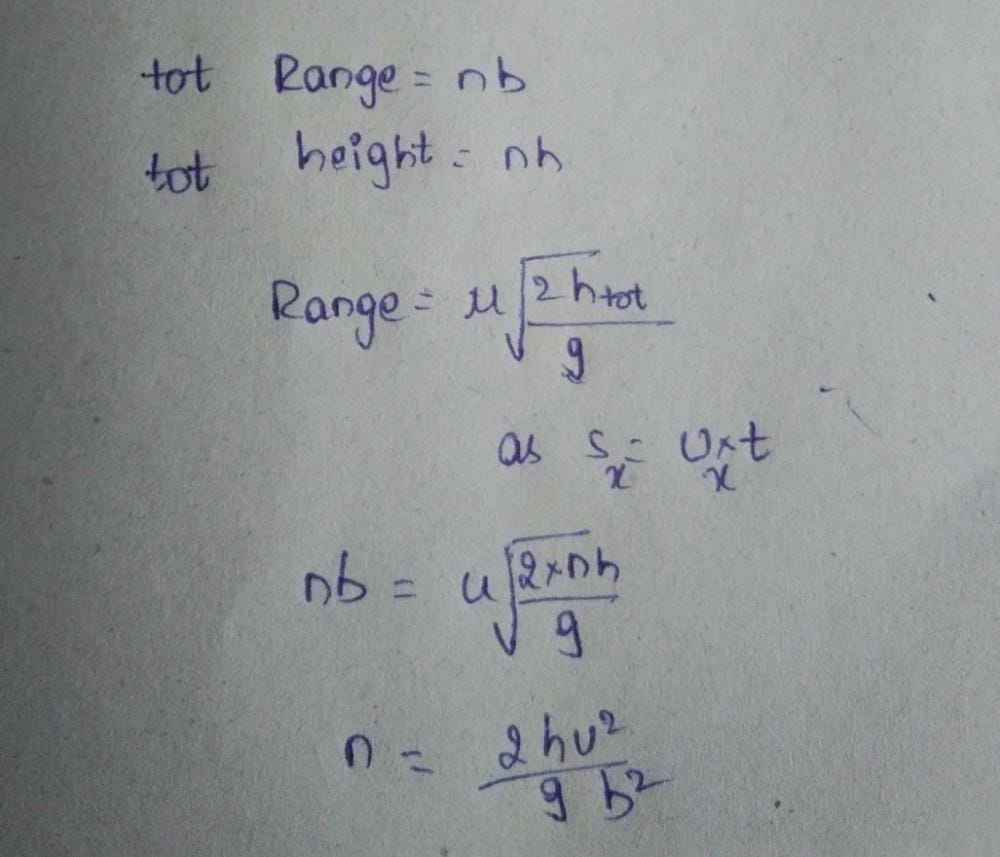 tot Range = nb
tot height = nh
Range = u√(2htot/g)
as sₓ = uₓ×t
nb = u√(2×nh/g)
n = 2hu²/g b²